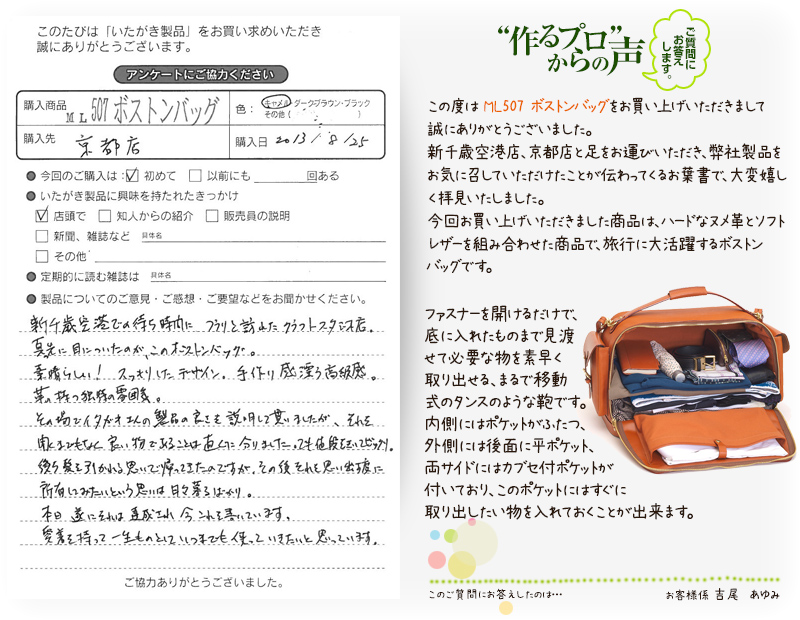 このたびは「いたがき製品」をお買い求めいただき
誠にありがとうございます。
アンケートにご協力ください
購入商品 ML507 ボストンバッグ 色: キャメル ダークブラウン・ブラック
その他( )
購入先 京都店 購入日 2013/8/25
今回のご購入は: 初めて 以前にも 回ある
いたがき製品に興味を持たれたきっかけ
店頭で 知人からの紹介 販売員の説明
新聞、雑誌など 具体名
その他
定期的に読む雑誌は 具体名
製品についてのご意見・ご感想・ご要望などをお聞かせください。
新千歳空港での待ち時間に フラリと訪れた クラフトスタジオ店。
真先に目についたのが、このボストンバッグ。
素晴らしい! スッキリしたデザイン。手作り感漂う高級感。
革の持つ独特の雰囲気。
その場でイタガキさんの製品の良さを説明して貰いましたが、それを
聞くまでもなく良い物であることは直ぐに分りました。でも値段をきいてビックリ。
後ろ髪を引かれる思いで帰ってきたのですが、その後それを思い出す度に
所有してみたいという思いは日々募るばかり。
本日 遂にそれは達成され 今これを書いています。
愛着を持って一生ものとしていつまでも使っていきたいと思っています。
ご協力ありがとうございました。
“作るプロ”
からの声
ご質問に
お答え
します。
この度は ML507 ボストンバッグをお買い上げいただきまして
誠にありがとうございました。
新千歳空港店、京都店と足をお運びいただき、弊社製品を
お気に召していただけたことが伝わってくるお葉書で、大変嬉し
く拝見いたしました。
今回お買い上げいただきました商品は、ハードなヌメ革とソフト
レザーを組み合わせた商品で、旅行に大活躍するボストン
バッグです。
ファスナーを開けるだけで、
底に入れたものまで見渡
せて必要な物を素早く
取り出せる、まるで移動
式のタンスのような鞄です。
内側にはポケットがふたつ、
外側には後面に平ポケット、
両サイドにはカブセ付ポケットが
付いており、このポケットにはすぐに
取り出したい物を入れておくことが出来ます。
このご質問にお答えしたのは… お客様係 吉尾 あゆみ